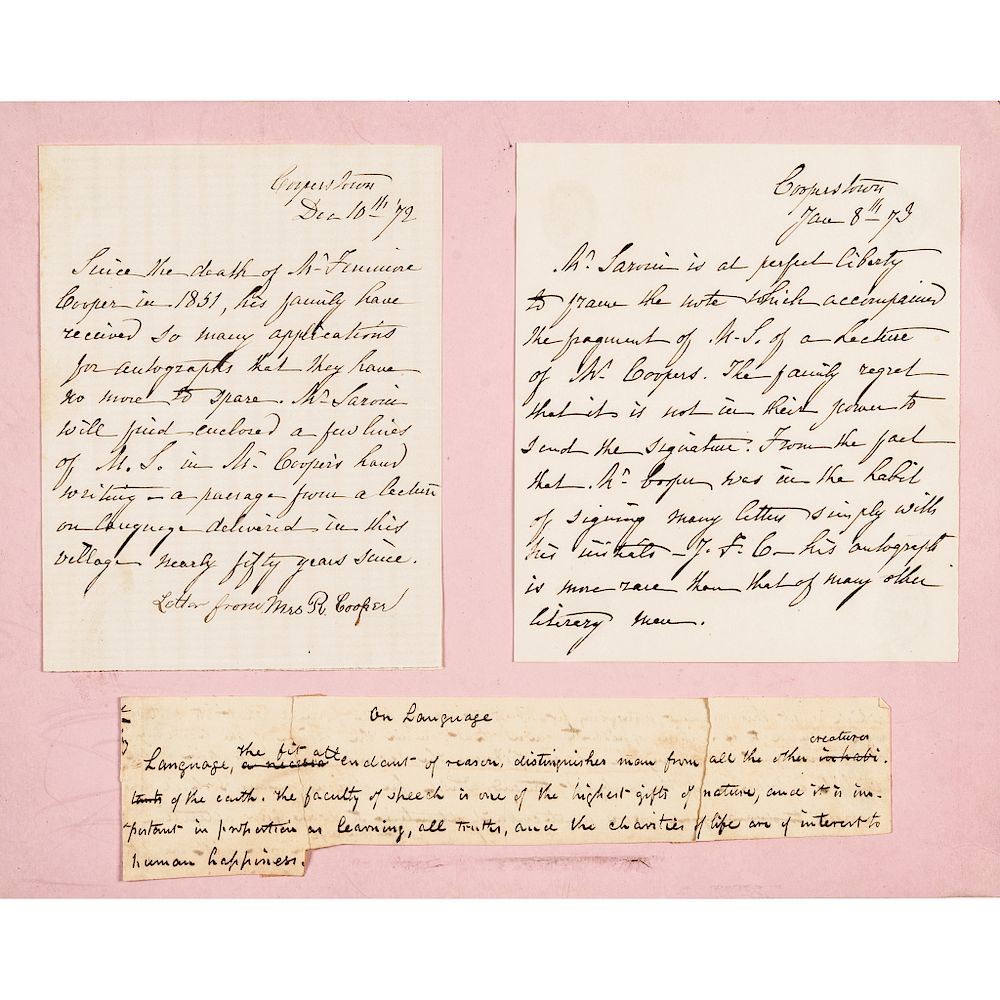 Cooperstown
Dec 10th '72
Since the death of Mr Fenimore
Cooper in 1851, his family have
received so many applications
for autographs that they have
no more to spare. Mr Saroni
will find enclosed a few lines
of M.S. in Mr Cooper's hand
writing – a passage from a lecture
on language delivered in this
village nearly fifty years since.
Letter from Mrs R. Cooper
Cooperstown
Jan 8th 73
Mr Saroni is at perfect liberty
to frame the note which accompanied
the fragment of M-S. of a Lecture
of Mr Coopers. The family regret
that it is not in their power to
send the signature. From the fact
that Mr Cooper was in the habit
of signing many letters simply with
his initials – J. F. C – his autograph
is more rare than that of many other
literary men.
On Language
Language, a necessa the fit attendant of reason, distinguishes man from all the other inhabi- creatures
tants of the earth. The faculty of speech is one of the highest gifts of nature, and it is im-
portant in proportion as learning, all truths, and the charities of life are of interest to
human happiness.